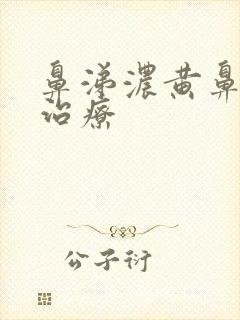 鼻涕濃黄鼻
治療
公子衍